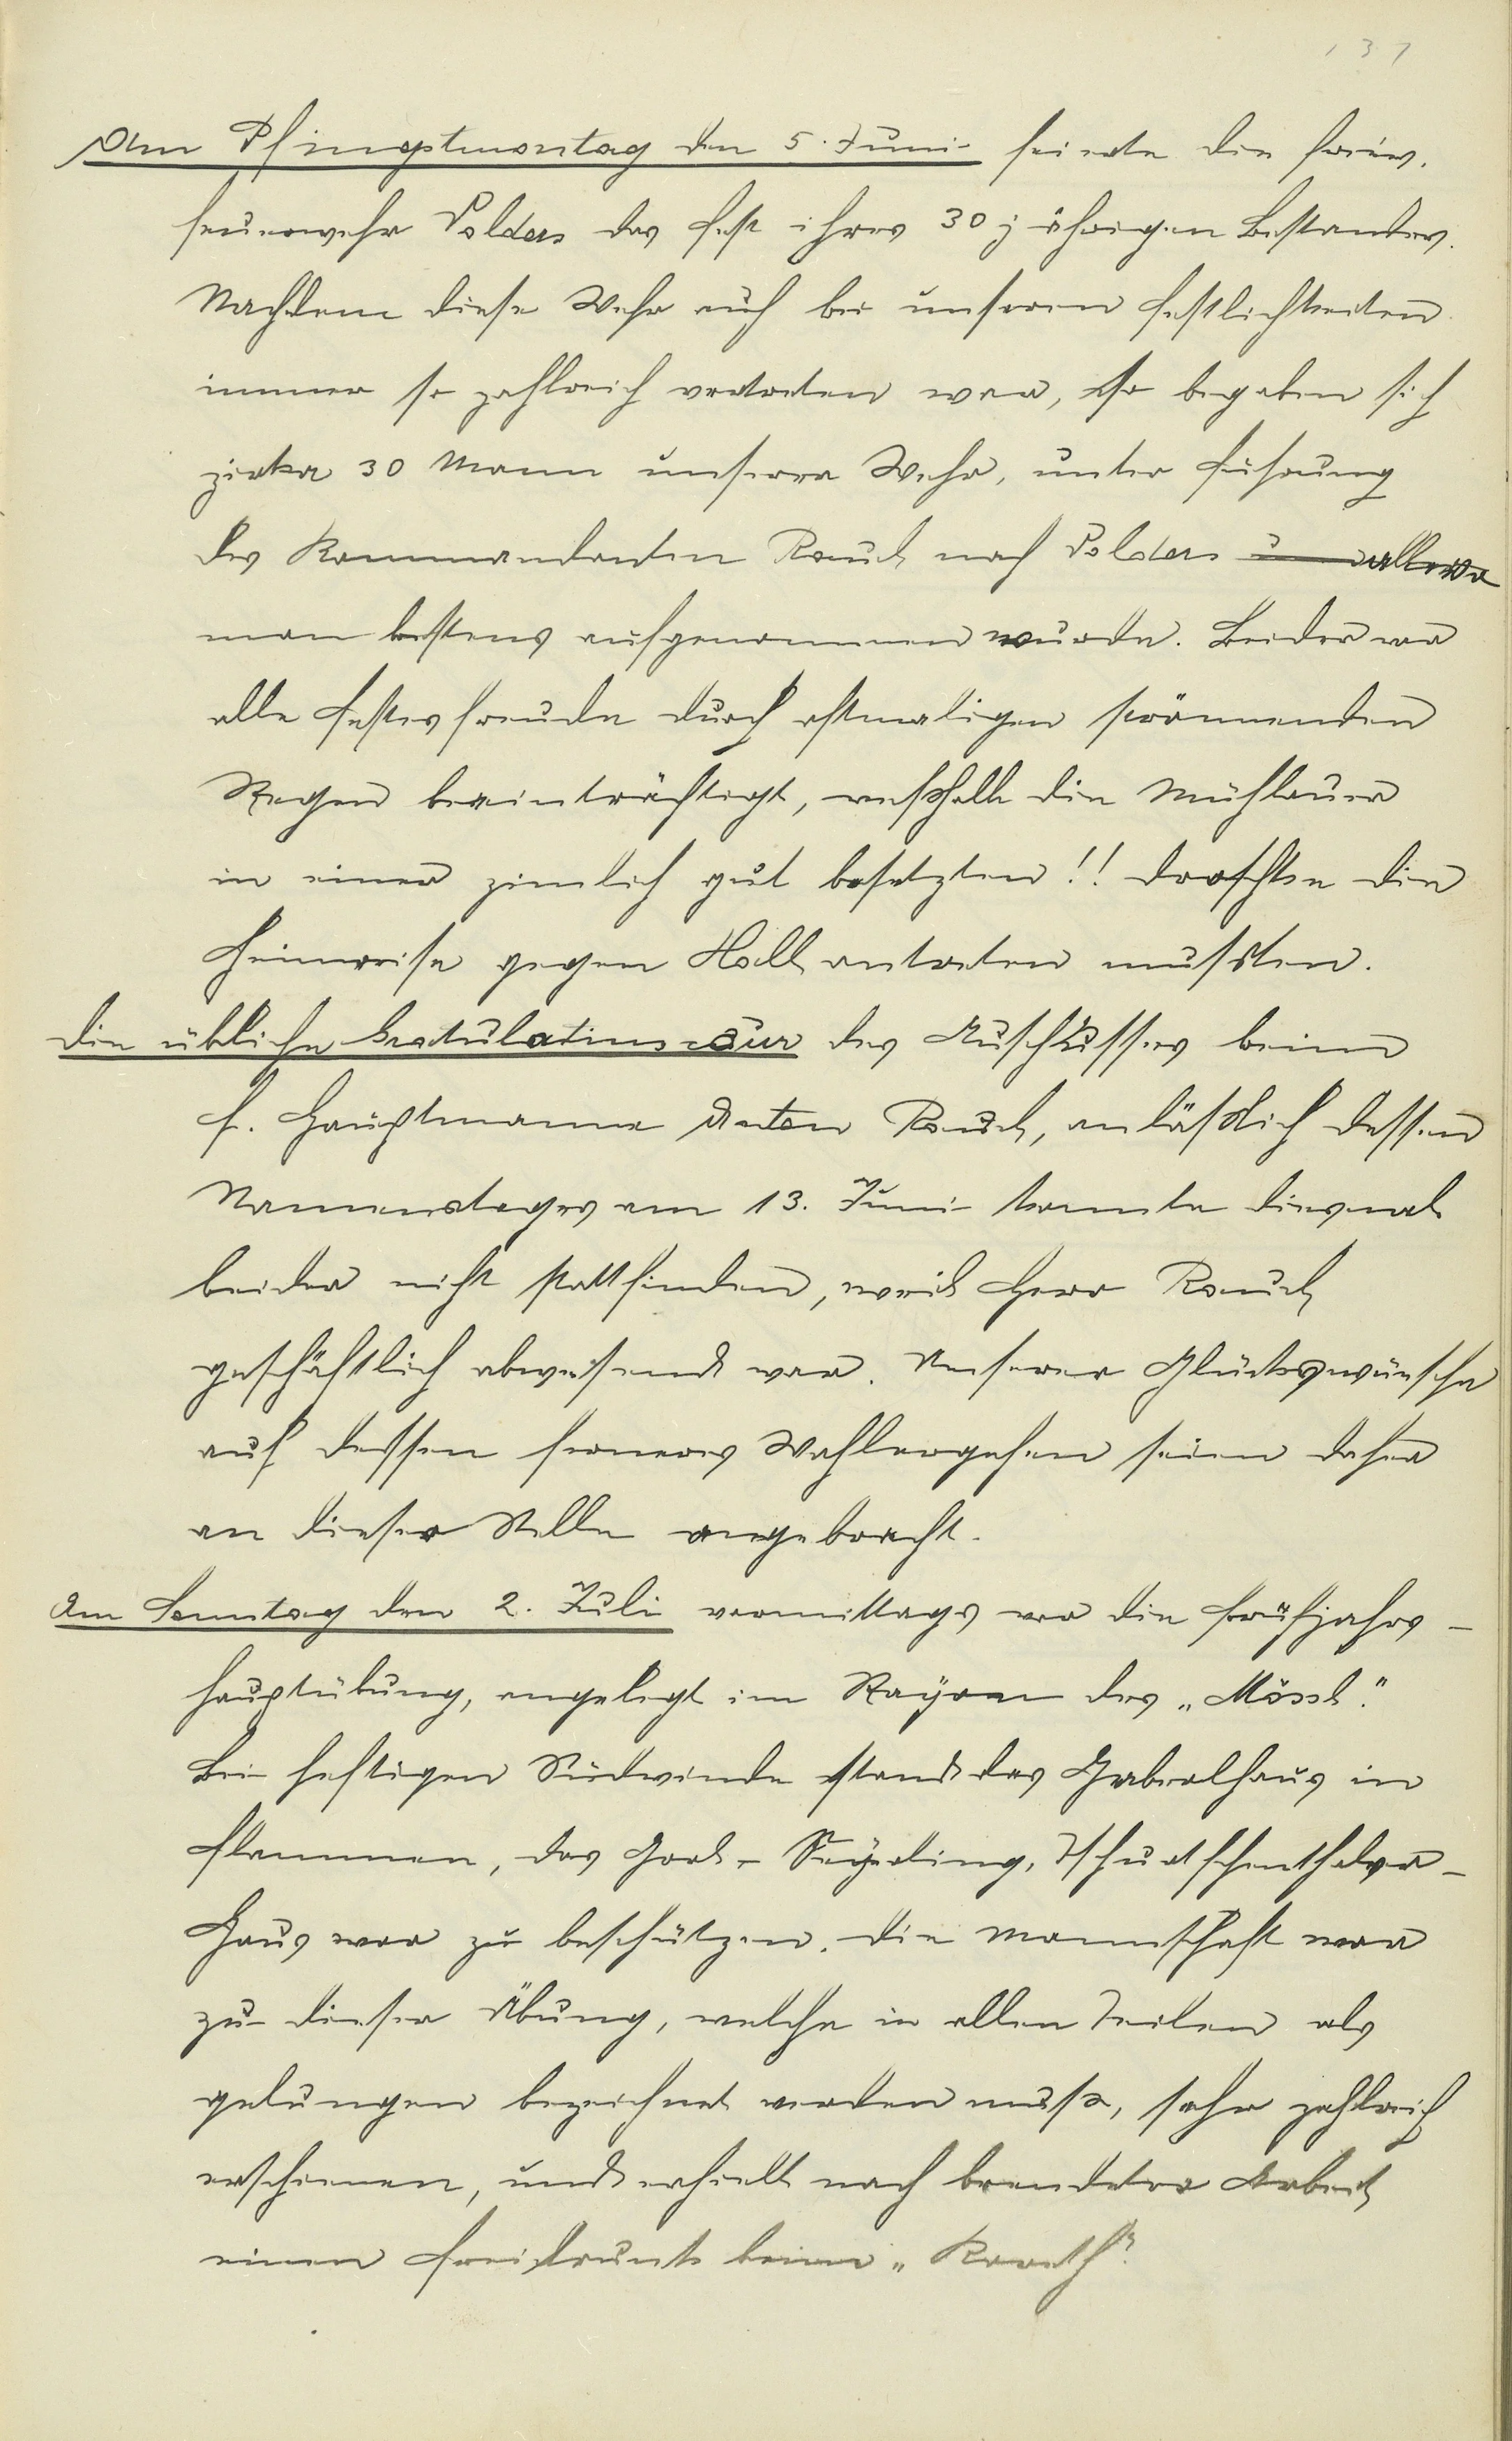 137
Am Pfingstmontag den 5. Juni feierte die freiw.
Feuerwehr Volders das Fest ihres 30 jährigen Bestandes.
Nachdem diese Wehr auch bei unseren Festlichkeiten
immer so zahlreich vertreten war, so begaben sich
zirka 30 Mann unserer Wehr, unter Führung
des Kommandanten Rauch nach Volders allwo
man bestens aufgenommen wurde. Leider war
alle Festesfreude durch oftmaligen strömenden
Regen beeinträchtigt, weßhalb die Mühlauer
in einer ziemlich gut besetzten!! Droschke die
Heimreise gegen Hall antreten mußten.
Die übliche Gratulationscour des Ausschusses beim
H. Hauptmanne Anton Rauch, anläßlich dessen
Namenstages am 13. Juni konnte diesmal
leider nicht stattfinden, weil Herr Rauch
geschäftlich abwesend war. Unsere Glückswünsche
auf dessen ferneres Wohlergehen seien daher
an dieser Stelle angebracht.
Am Sonntag den 2. Juli vormittags war die Frühjahrs-
hauptübung, angelegt im Rayon des „Mössl".
Bei heftigen Südwinde stand das Haus in
Flammen, das Tschurtschenthaler-
Haus war zu beschützen. Die Mannschaft war
zu dieser Übung, welche in allen Teilen als
gelungen bezeichnet werden muß, sehr zahlreich
erschienen, und erhielt nach beendeter Arbeit
einen Freitrunk beim „Koreth".